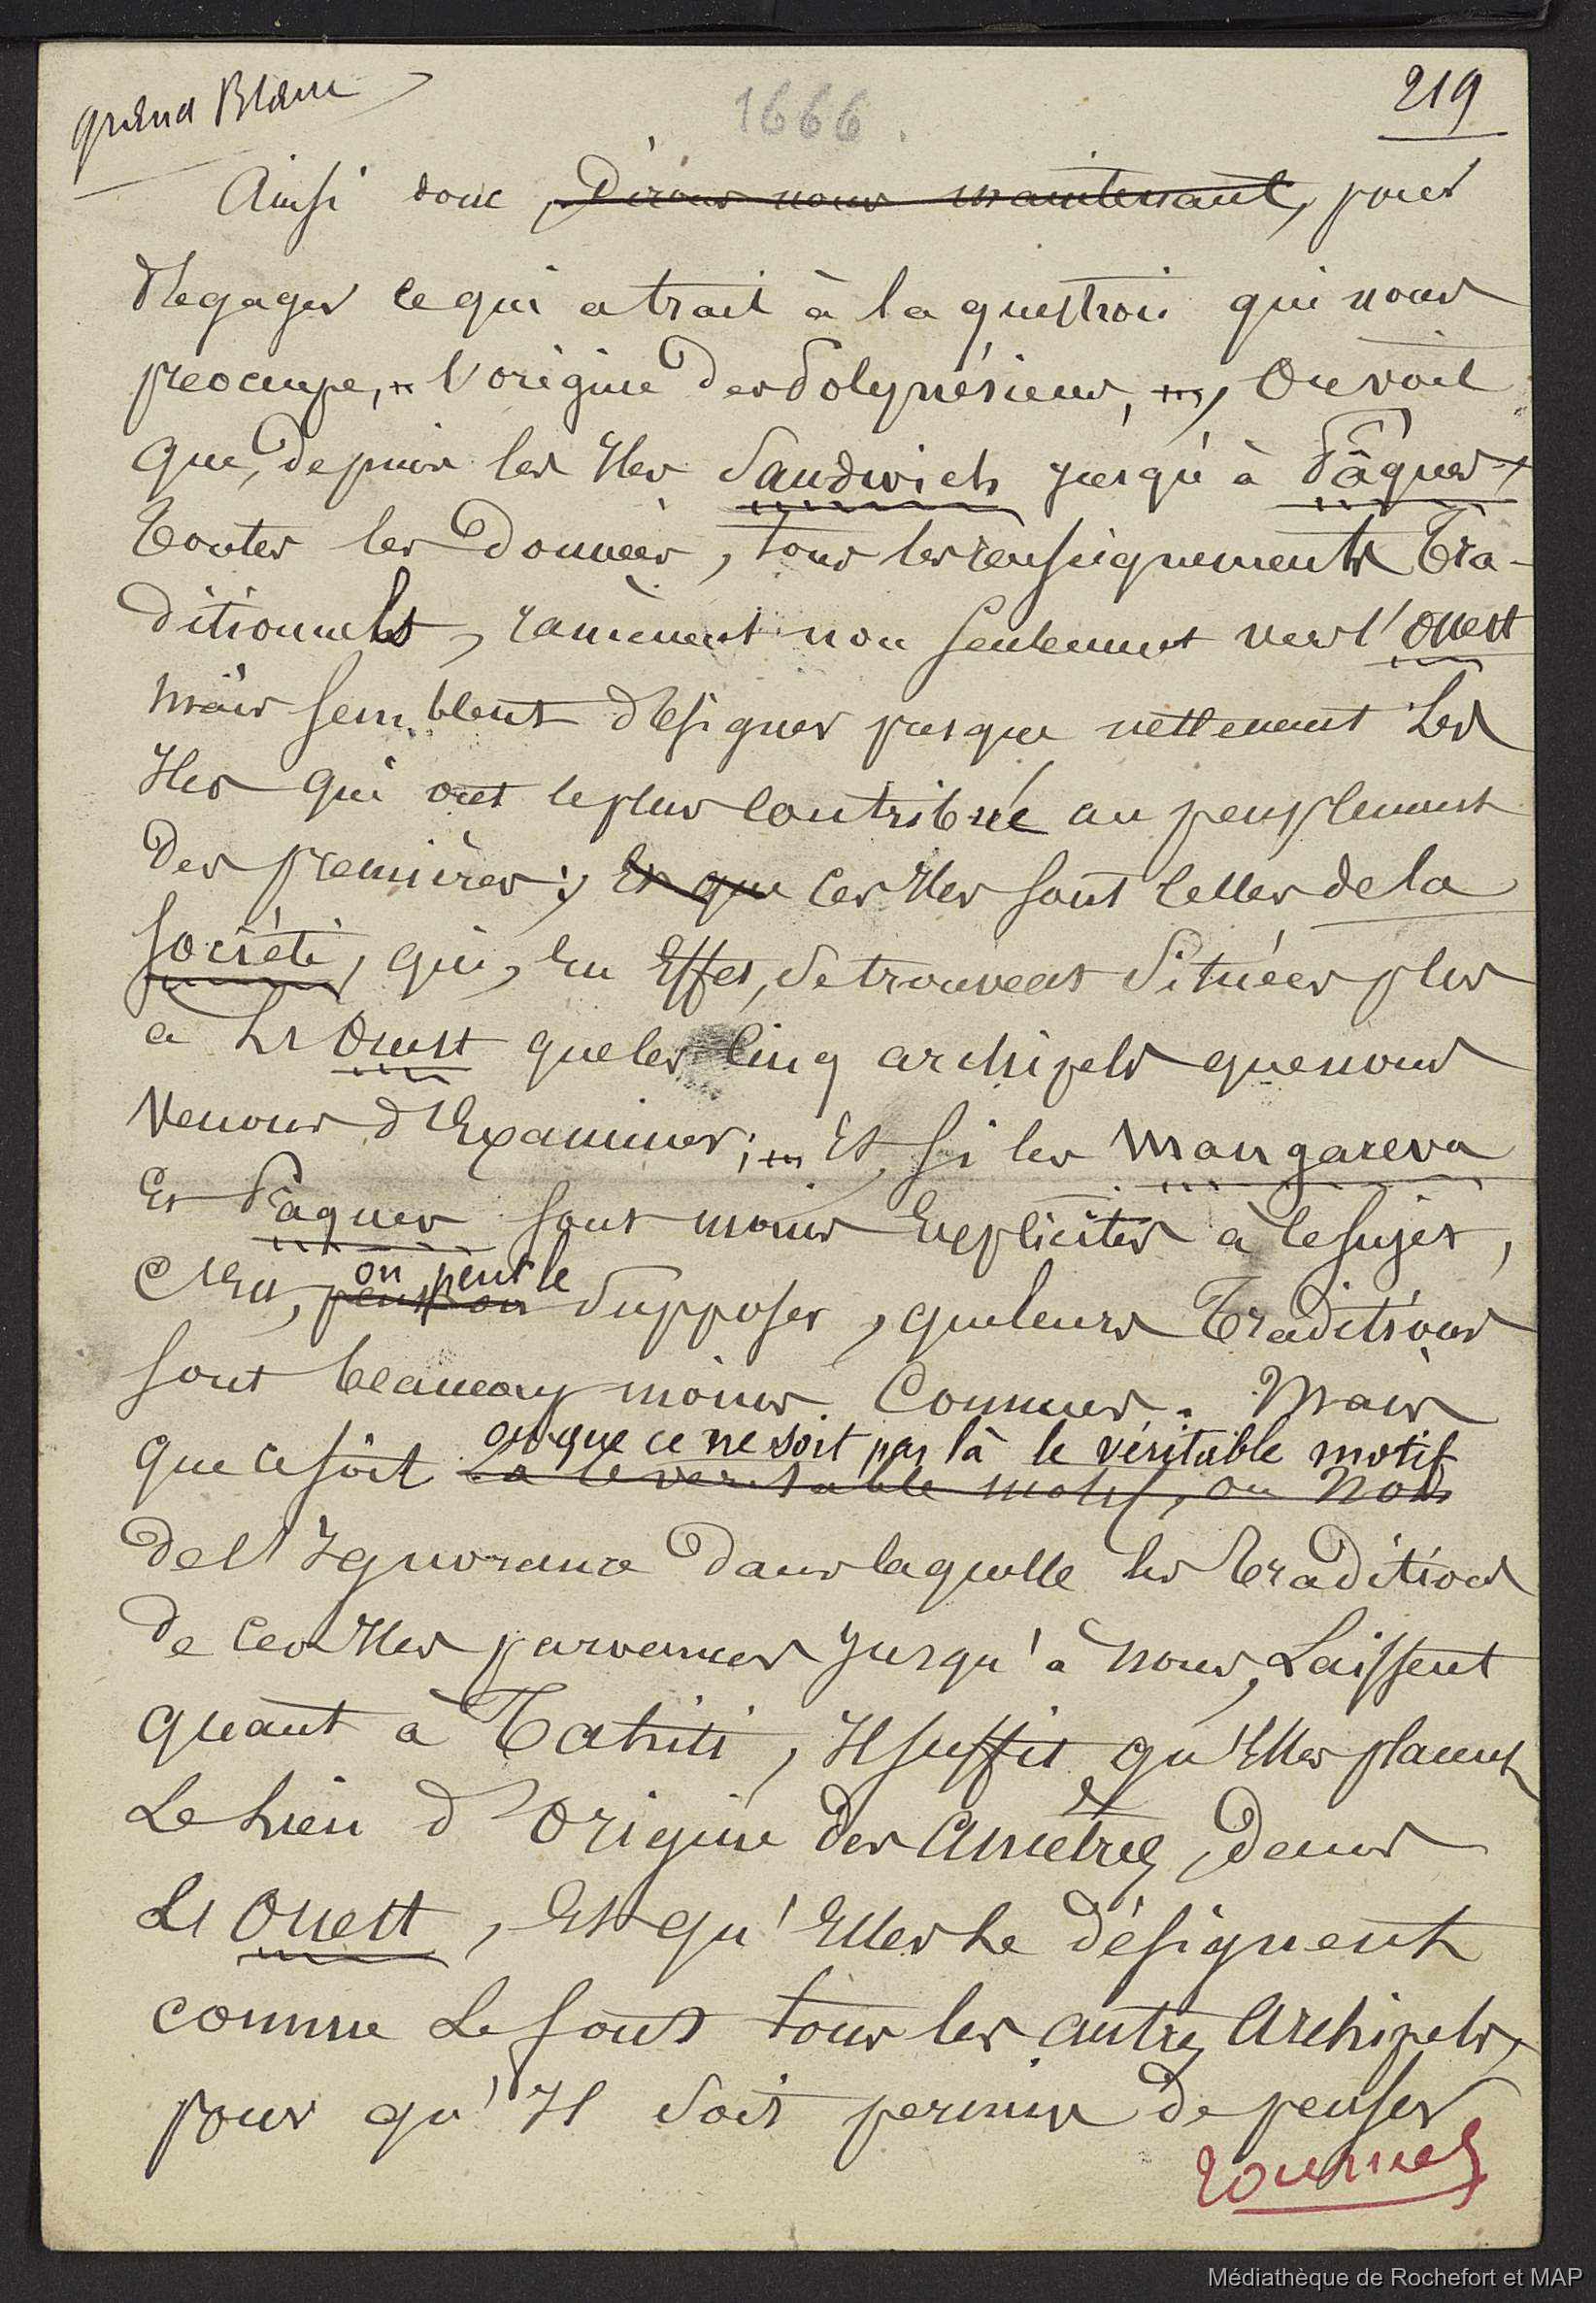 grand Blanc
1666.
219
Ainsi donc, Dirons nous maintenant, pour
dégager ce qui a trait à la question qui nous
préocupe, - l'origine des Polynésiens, -, On voit
que, depuis les Iles Sandwich jusqu'à Pâques,
toutes les données, tous les renseignements tra-
ditionnels, ramènent non seulement vers l'ouest
mais semblent désigner presque nettement les
Iles qui ont le plus contribué au peuplement
des premières: Et que ces Iles sont celles de la
Société, qui, en Effet, se trouvent situées plus
à L'Ouest que les cinq archipels que nous
venons d'Examiner; - Et, si les Mangareva
Et Pâques sont moins Explicites à ce sujet,
on peut le
C'est, peut-on supposer, que leurs traditions
sont beaucoup moins connues. Mais
ou que ce ne soit pas là le véritable motif
que ce soit là le véritable motif, ou non
de l'Ignorance dans laquelle les traditions
de ces Iles parvenues jusqu'à nous, Laissent
quant à Tahiti, Il suffit qu'Elles placent
Le lieu d'Origine des Ancêtres, dans
L'Ouest, Et qu'Elles le désignent
comme le font tous les autres Archipels,
pour qu'Il soit permis de penser
tournez
Médiathèque de Rochefort et MAP